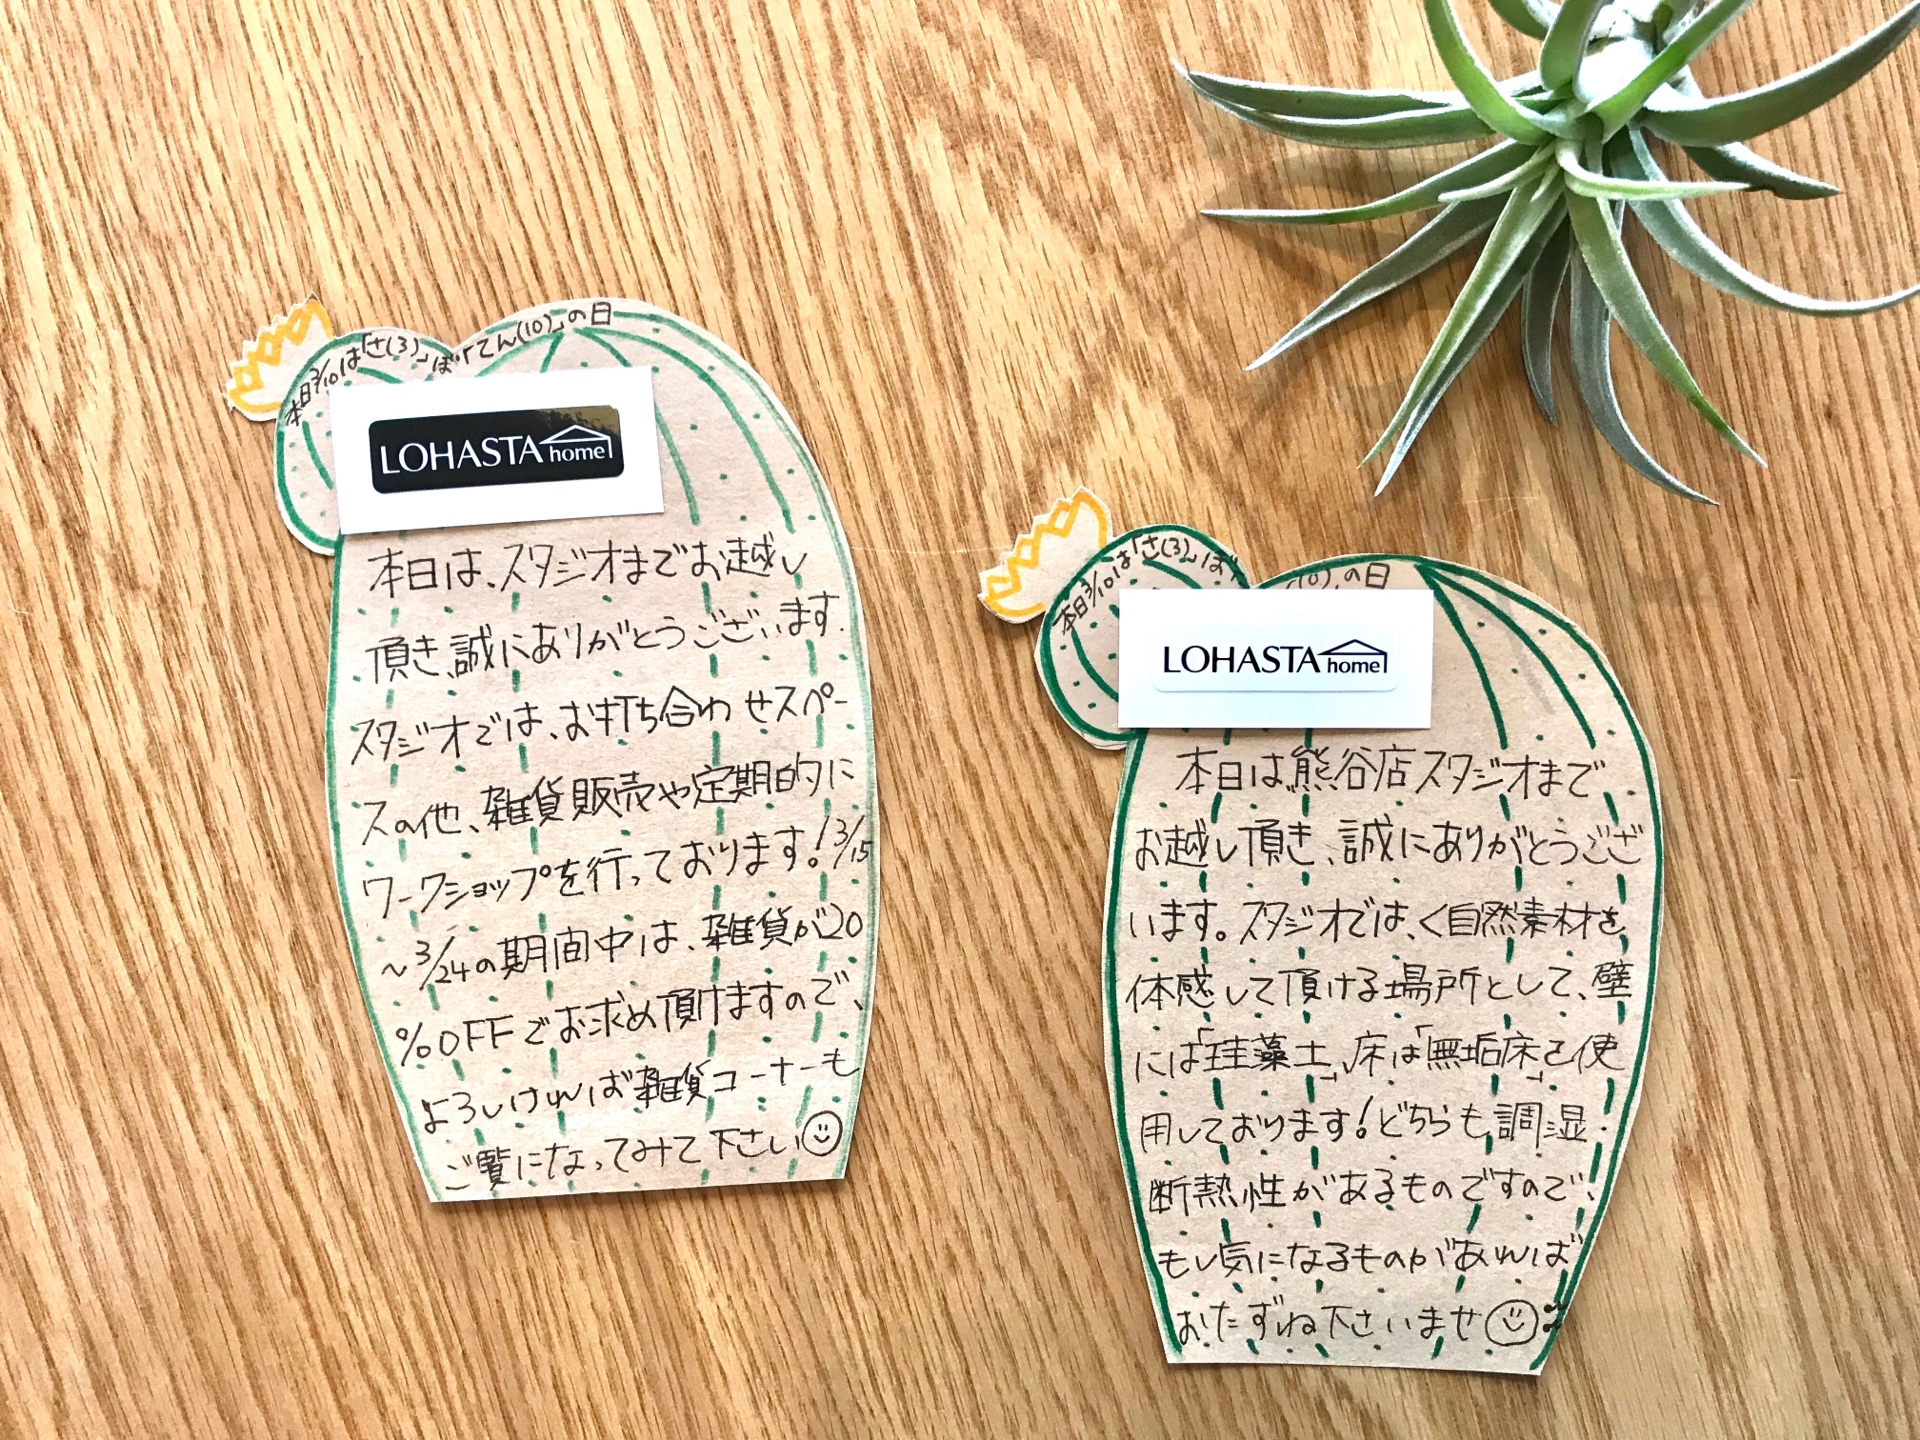 本日3/10は「さ(3)」ぼ「てん(10)」の日
LOHASTA home
本日は、スタジオまでお越し
頂き、誠にありがとうございます。
スタジオでは、お打ち合わせスペー
スの他、雑貨販売や定期的に
ワークショップを行っております!3/15
~3/24の期間中は、雑貨が20
%OFFでお求め頂けますので、
よろしければ雑貨コーナーも
ご覧になってみて下さい
本日3/10は「さ(3)」ぼ
の日
LOHASTA home
本日は、熊谷店スタジオまで
お越し頂き、誠にありがとうござ
います。スタジオでは、く自然素材を
体感して頂ける場所として、壁
には「珪藻土」、床は「無垢床」を使
用しております!どちらも調湿・
断熱性があるものですので、
もし気になるものがあれば
おたずね下さいませ